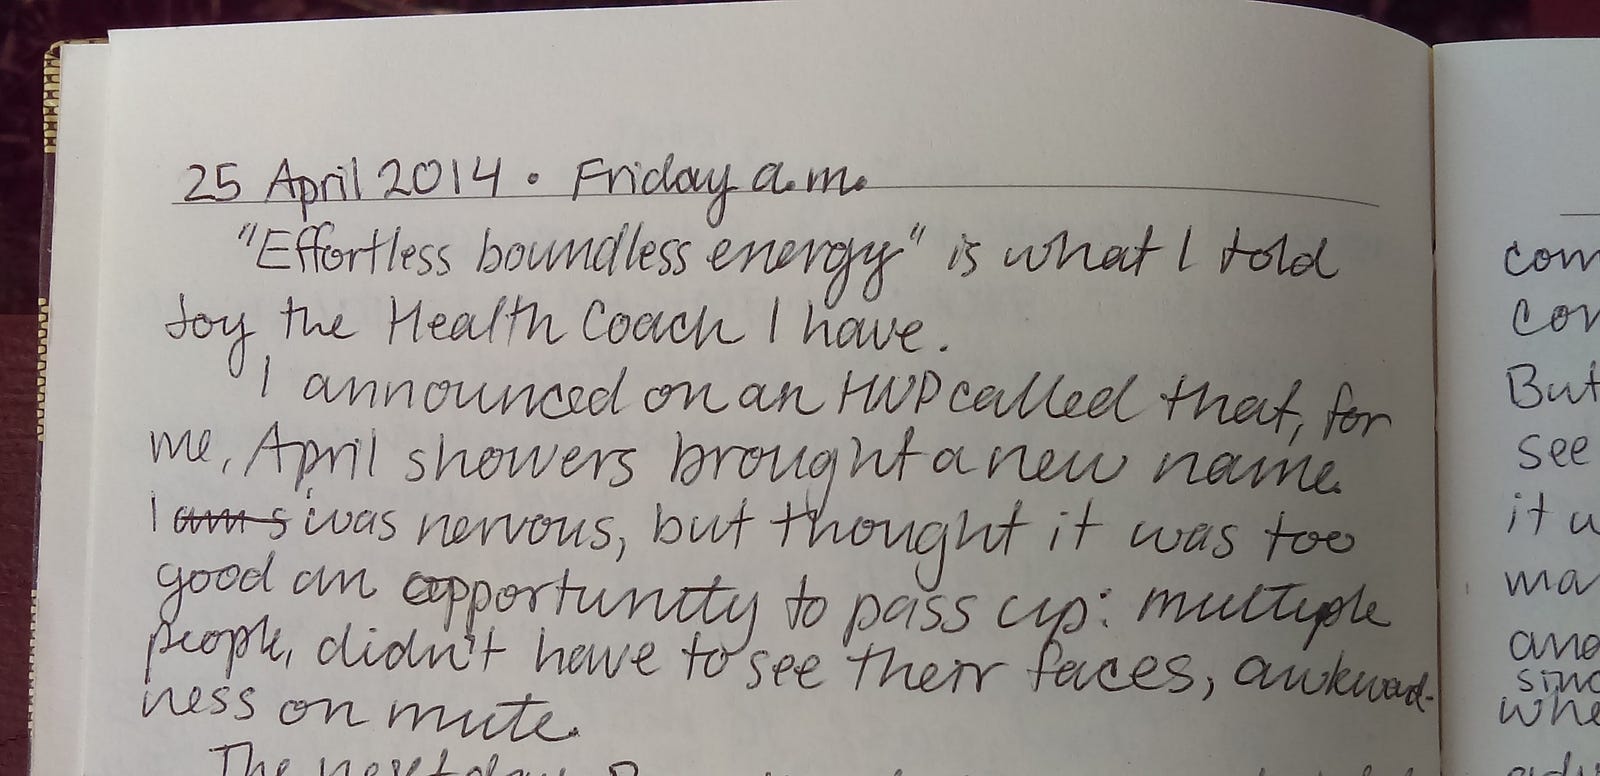 25 April 2014 • Friday a.m.
"Effortless boundless energy" is what I told
Joy the Health Coach I have.
I announced on an HWP called that, for
me, April showers brought a new name.
I am s was nervous, but thought it was too
good an opportunity to pass up: multiple
people, didn't have to see their faces, awkward-
ness on mute.
The next day
com
con
But
see
it w
ma
and
sinc
whe